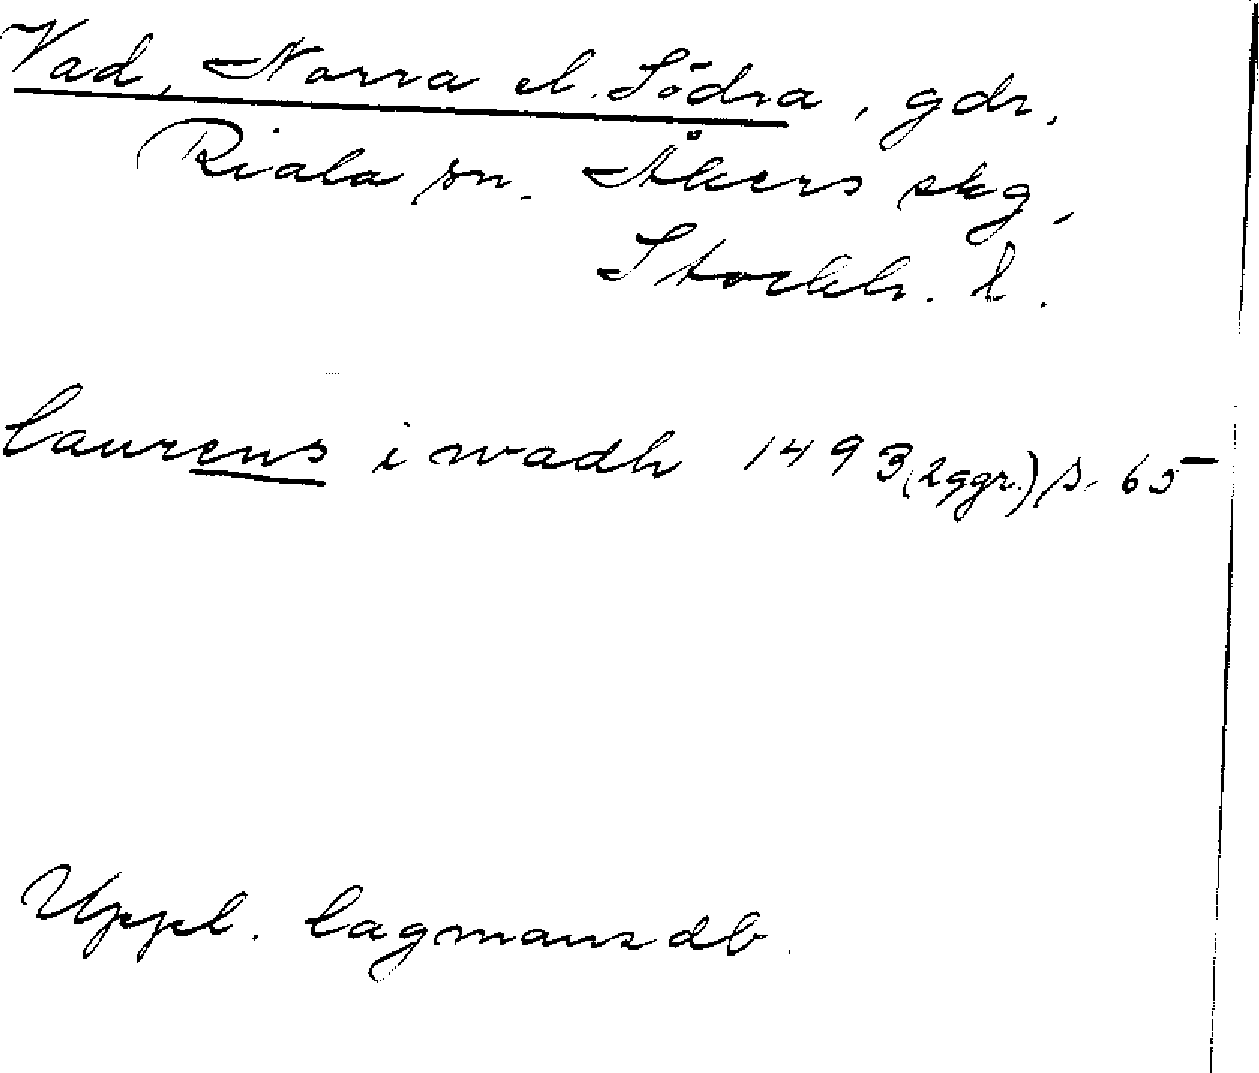 Vad, Norra el. Södra, gdr.
Riala sn. Åkers skg,
Stockh. l.
laurens i wadh 1493 (2 ggr.) s. 65
Uppl. lagmansdb.